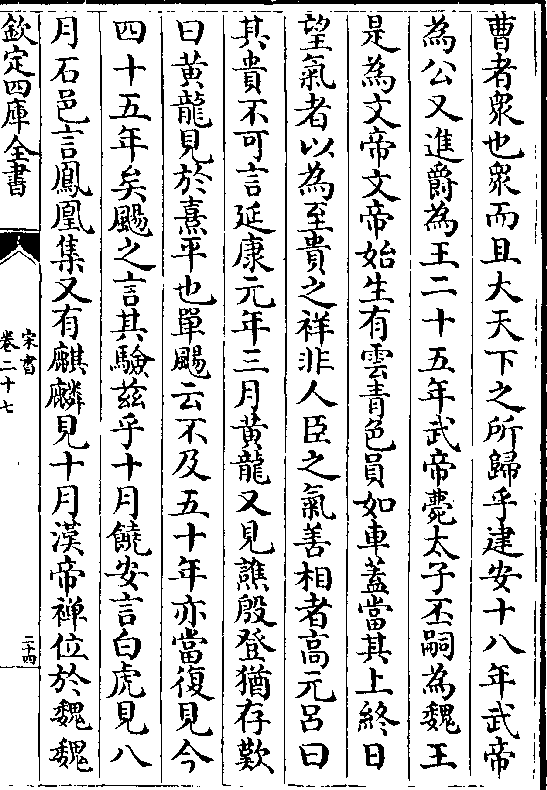 曹者衆也衆而且大天下之所歸乎建安十八年武帝
為公又進爵為王二十五年武帝薨太子丕嗣為魏王
是為文帝文帝始生有雲青色員如車蓋當其上終日
望氣者以為至貴之祥非人臣之氣善相者高元呂曰
其貴不可言延康元年三月黃龍又見譙殷登猶存歎
曰黃龍見於熹平也單颺云不及五十年亦當復見今
四十五年矣颺之言其驗茲乎十月饒安言白虎見八
月石邑言鳳凰集又有麒麟見十月漢帝禪位於魏魏
欽定四庫全書
宋書
卷二十七
二十四